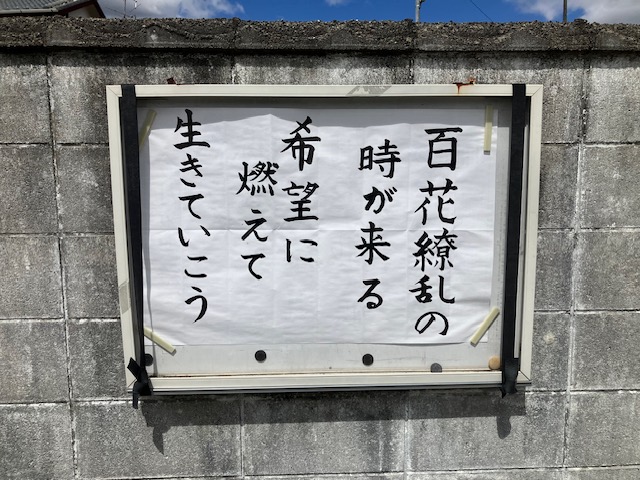 百花繚乱の
時が来る
希望に
燃えて
生きていこう